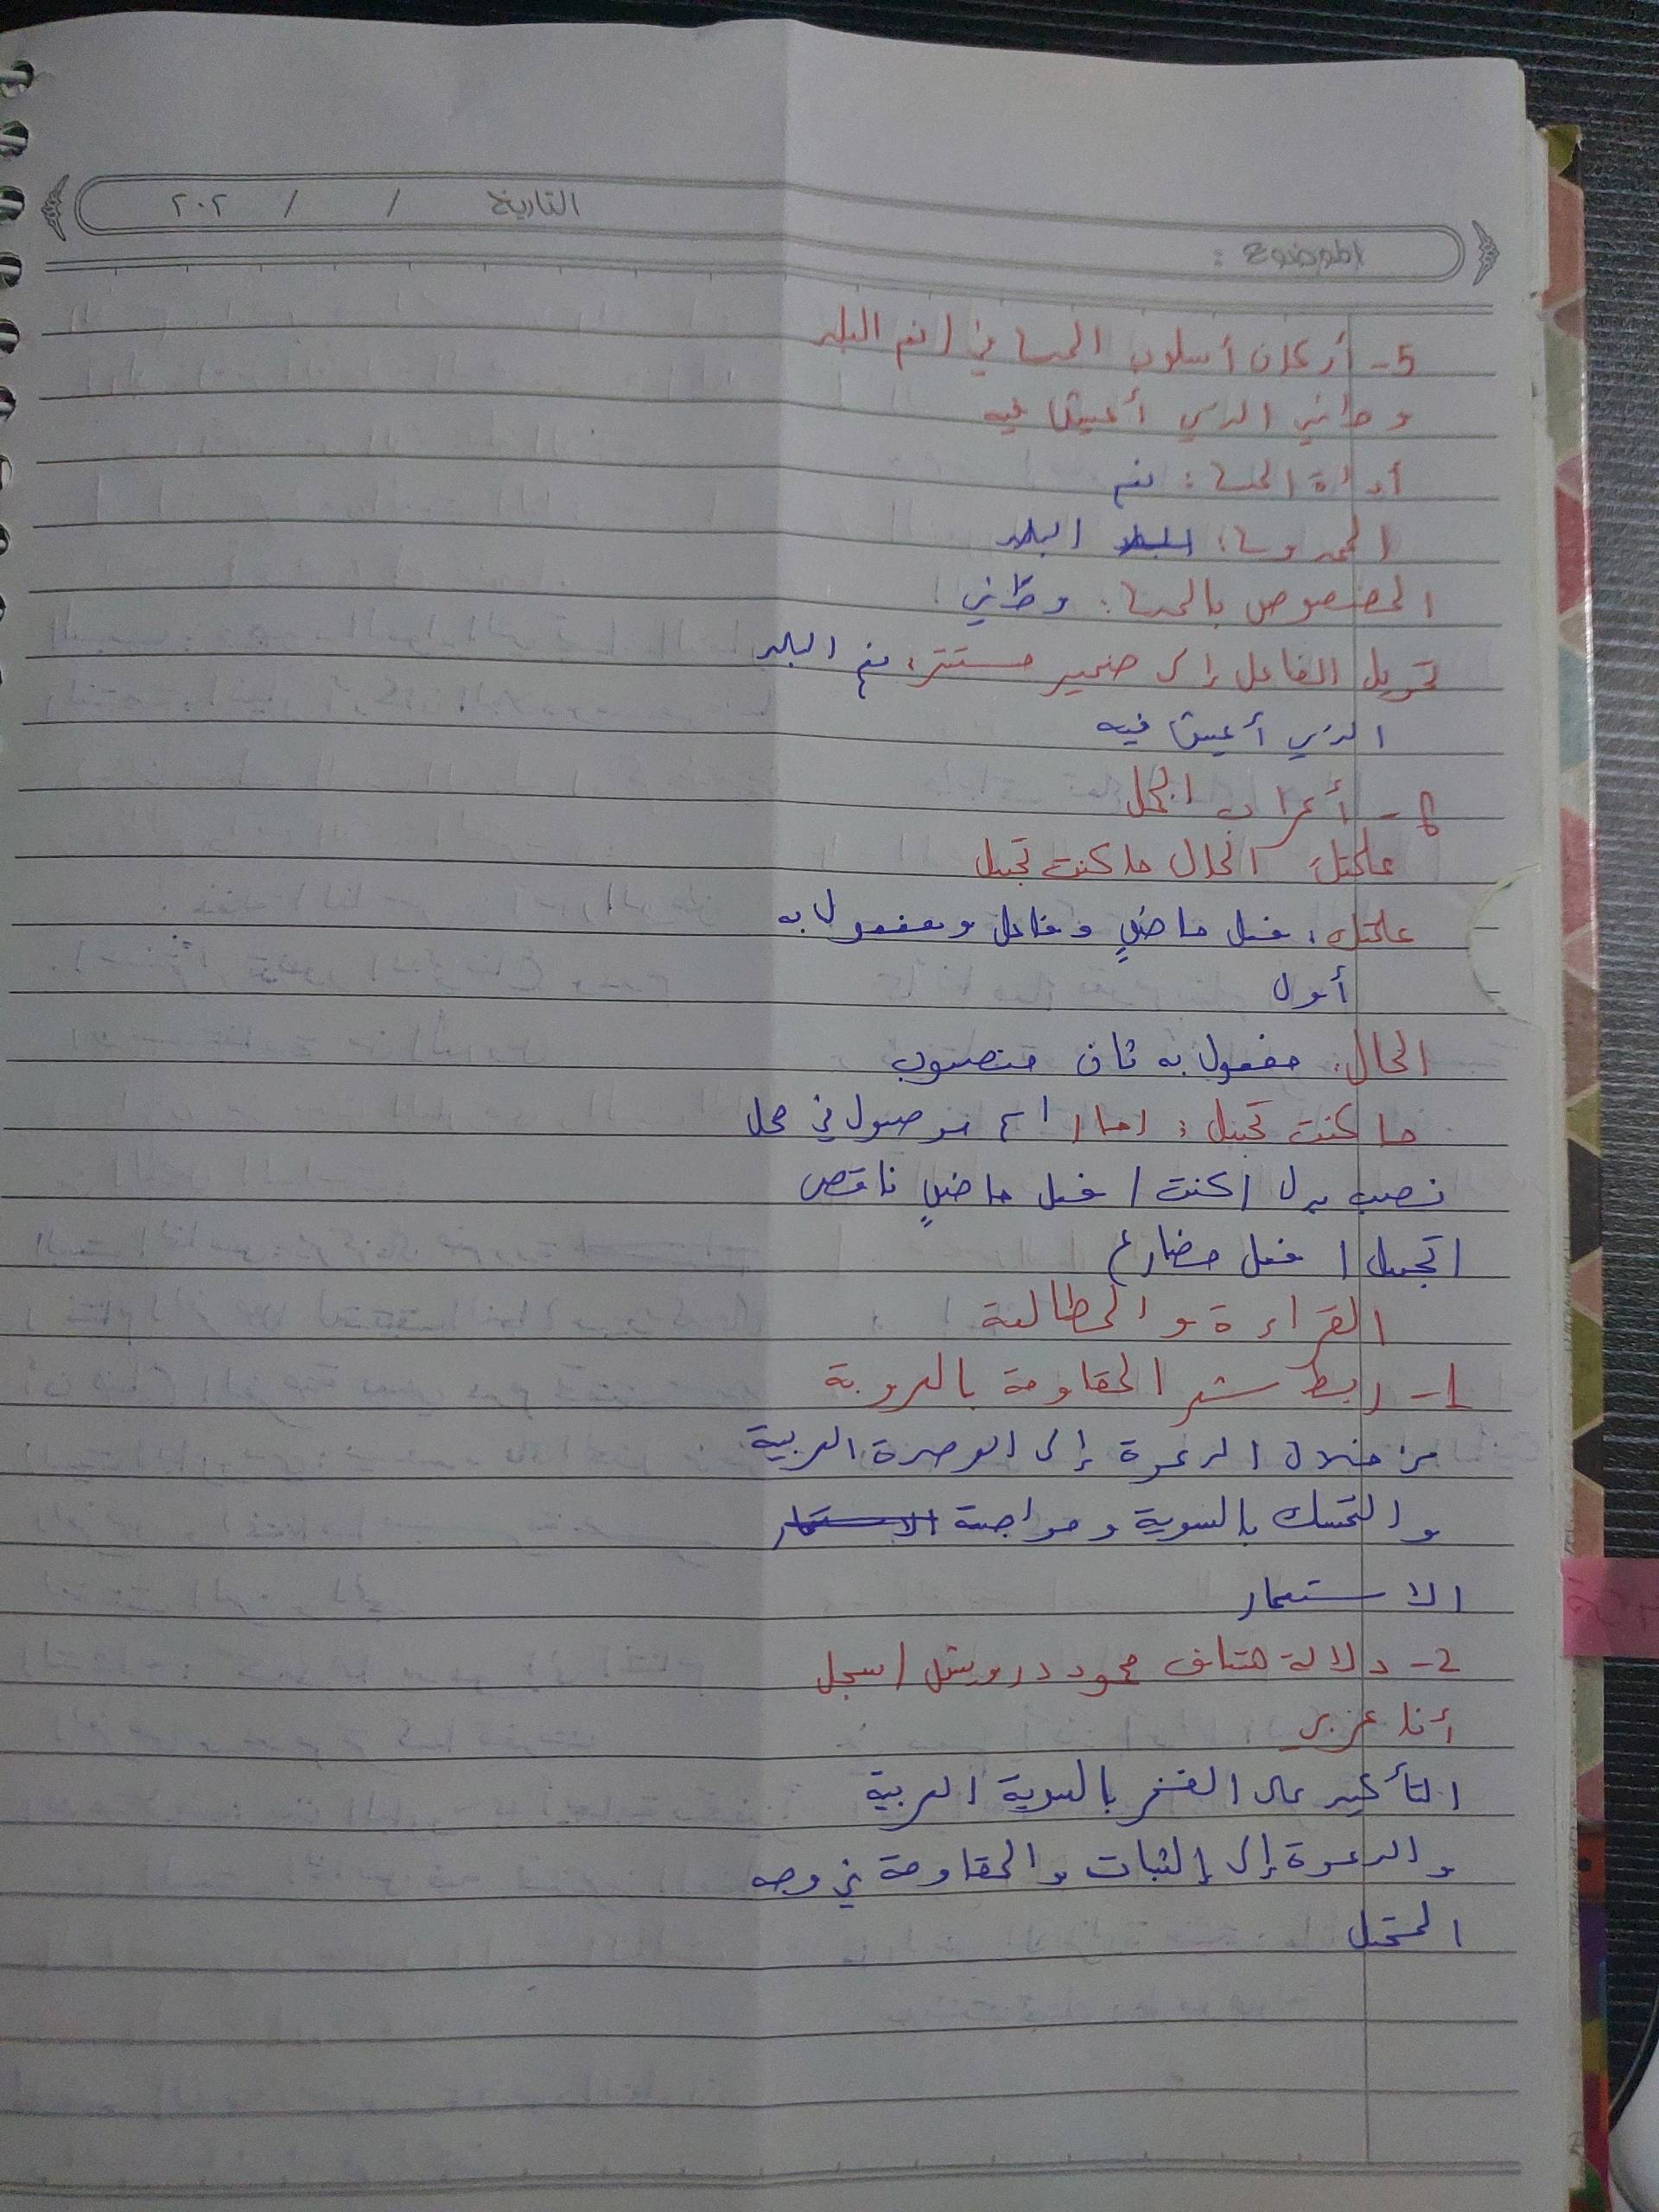 التاريخ / / ٢٠٢
الموضوع :
5- أركان أسلوب المدح في (نعم البلد
وطني الذي أعيش فيه
أداة المدح : نعم
الممدوح : البلد
المخصوص بالمدح : وطني
تحويل الفاعل إلى ضمير مستتر : نعم البلد
الذي أعيش فيه
6- أعراب الجمل
علمتك الحال ما كنت تجهل
علمتك : فعل ماضٍ وفاعل ومفعول به
أول
الحال : مفعول به ثان منصوب
ما كنت تجهل : (ما) اسم موصول في محل
نصب بدل (كنت) فعل ماضٍ ناقص
(تجهل) فعل مضارع
القراءة والمطالعة
1- ربط شعر المقاومة بالعروبة
من خلال الدعوة إلى الوحدة العربية
والتمسك بالهوية ومواجهة
الاستعمار
2- دلالة هتاف محمود درويش (سجل
أنا عربي
التأكيد على الفخر بالهوية العربية
والدعوة إلى الثبات والمقاومة في وجه
المحتل